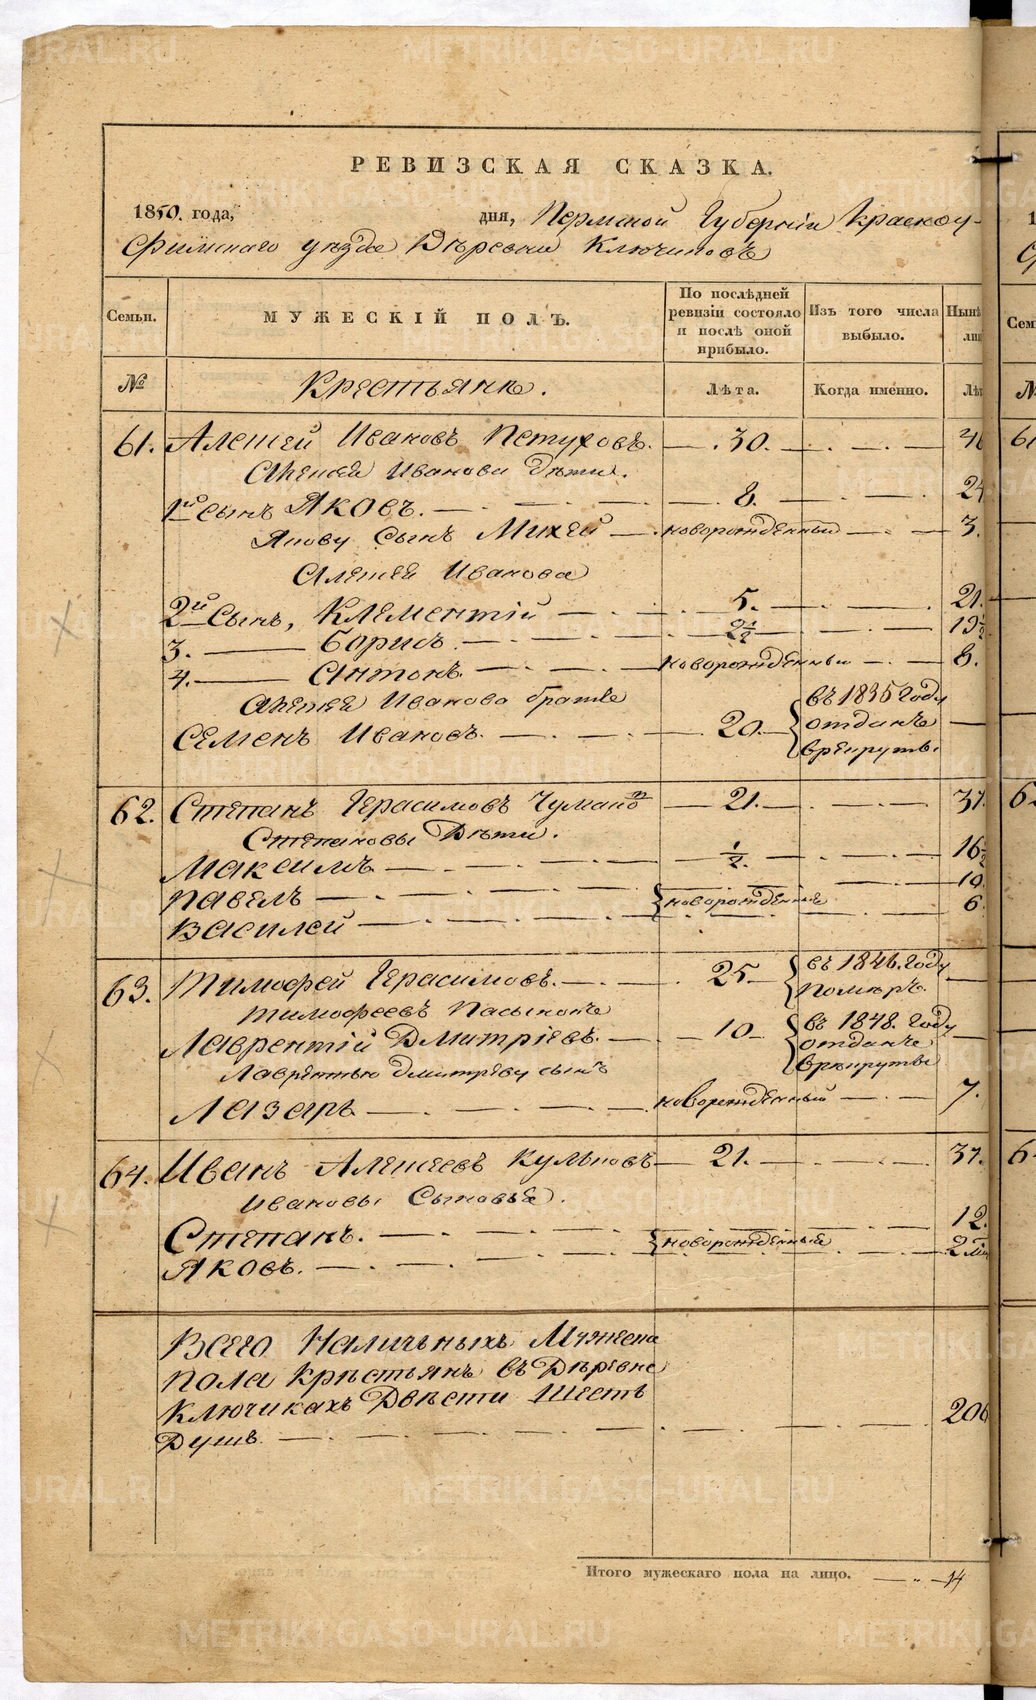 РЕВИЗСКАЯ СКАЗКА.
1850. года, дня, Пермской Губернiи Красноу-
фимскаго уѣзда Деревни Ключиковъ
Семьи.
МУЖЕСКІЙ ПОЛЪ.
По послѣдней
ревизіи состояло
и послѣ оной
прибыло.
Изъ того числа
выбыло.
Нынѣ
№
Крестьяне.
Лѣта.
Когда именно.
61. Алексей Ивановъ Петуховъ. 30.
Алексея Иванова дѣти.
1й сынъ Яковъ. 8. 24
Якову сынъ Михей новорожденный 3.
Алексея Иванова
2й сынъ, Клементiй 5. 21.
3. Борисъ. 2½ 19½
4. Антонъ. новорожденный 8.
Алексея Иванова братъ
Семенъ Ивановъ. 20. въ 1835 году
отданъ
врекруты.
62. Степанъ Герасимовъ 21. 37.
Степановы Дѣти.
Максимъ ½. 16½
Павелъ новорожденные 10.
Василей 6.
63. Тимофей Герасимовъ. 25 въ 1846. году
помѣръ.
Тимофеевъ Пасынокъ
Лаврентiй Дмитрiевъ. 10 въ 1848. году
отданъ
врекруты
Лаврентью Дмитреву сынъ
Лазарь новорожденный 7.
64. Иванъ Алексеевъ Кульковъ 21. 37.
Ивановы Сыновья.
Степанъ. новорожденные 12.
Яковъ. 2
Всего Наличныхъ Мужеска
пола крестьянъ въ Деревне
Ключикахъ Двѣсти Шесть
Душъ. 206
Итого мужескаго пола на лицо. 14
METRIKI.GASO-URAL.RU